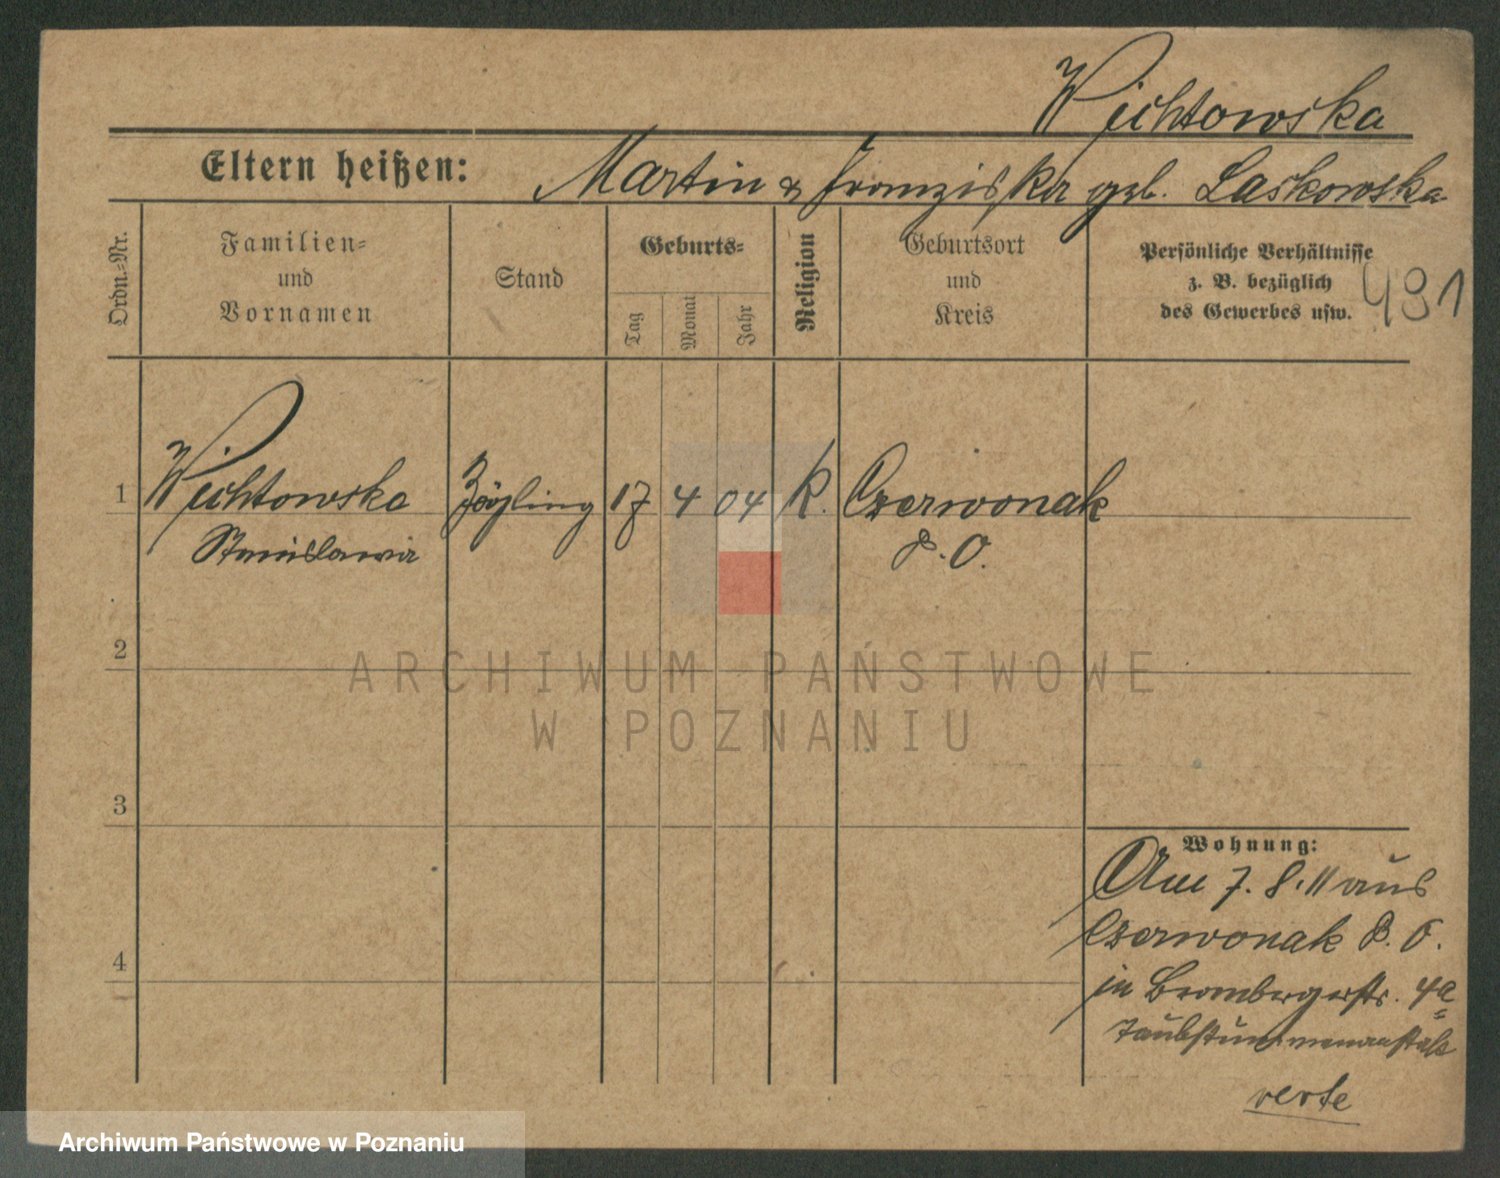 Wichtowska
Eltern heißen: Martin & Franziska geb. Laskowska
Ordn.-Nr.
Familien-
und
Vornamen
Stand
Geburts-
Tag
Monat
Jahr
Religion
Geburtsort
und
Kreis
Persönliche Verhältnisse
z. B. bezüglich
des Gewerbes usw.
491
1 Wichtowska Zögling 17 4 04 K. Czerwonak
Stanislawa P. O.
2
3
4
Wohnung:
Am 7. 8. 11 aus
Czerwonak P. O.
in Brombergerstr. 4a
Taubstummenanstalt
verte
ARCHIWUM PAŃSTWOWE
W POZNANIU
Archiwum Państwowe w Poznaniu